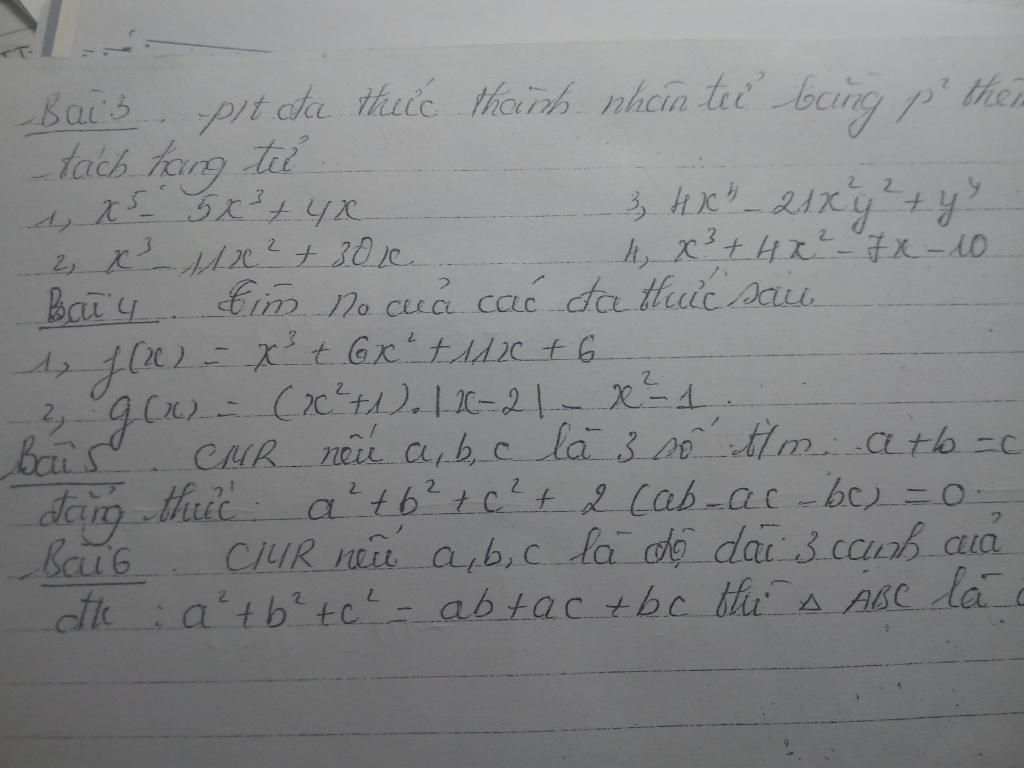 Bài 3. p/t đa thức thành nhân tử bằng p² thêm
tách hạng tử
1, x⁵ - 5x³ + 4x 3, 4x⁴ - 21x²y² + y⁴
2, x³ - 11x² + 30x 4, x³ + 4x² - 7x - 10
Bài 4. Tìm no của các đa thức sau
1, f(x) = x³ + 6x² + 11x + 6
2, g(x) = (x²+1).|x-2| - x² - 1.
Bài 5. CMR nếu a, b, c là 3 số t/m: a+b = c
đẳng thức: a² + b² + c² + 2(ab - ac - bc) = 0.
Bài 6. CMR nếu a, b, c là độ dài 3 cạnh của
đk: a² + b² + c² = ab + ac + bc thì △ ABC là